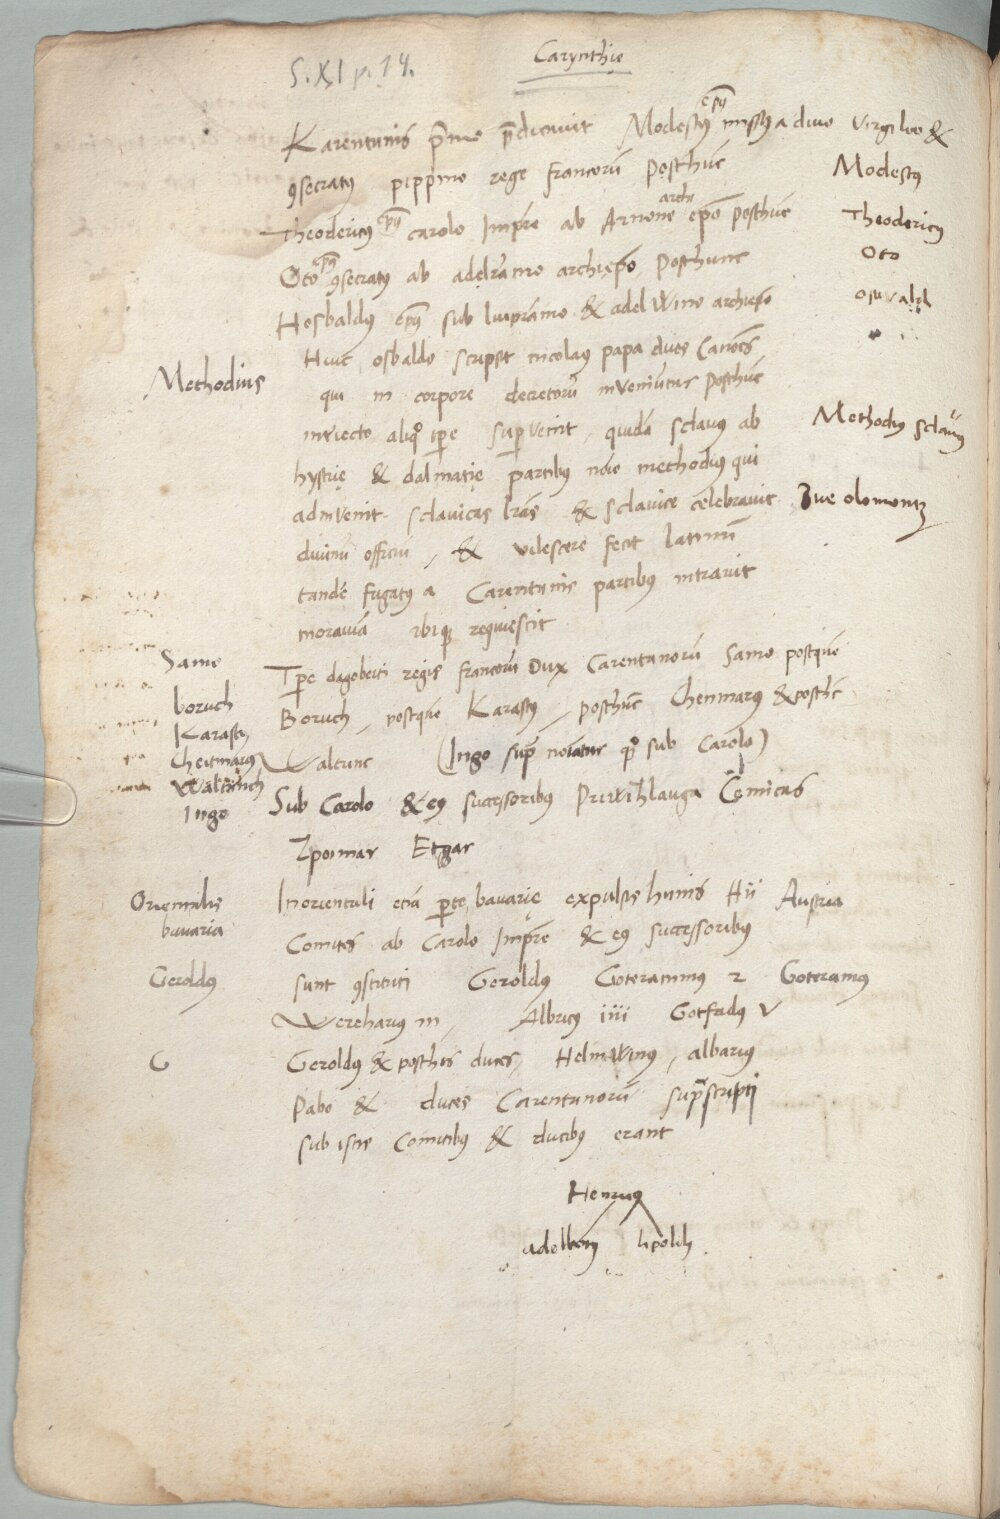 S. XI p. 14.
Carynthie
Karentanis p̄mo p̄dicavit Modestꝰ epꝰ missꝰ a divo Virgilio &
ꝯsecratꝰ pippino rege francorū Posthūc
Modestꝰ
Theodericꝰ epꝰ carolo Imp̄re ab Arnone archi epō Posthūc
Theodericꝰ
Oto epꝰ ꝯsecratꝰ ab adelramo archiepō Posthunc
Oto
Hosbaldꝰ epꝰ sub luipramo & adelwino archiepō
osuvald
Huic osbaldo scripsit nicolaꝰ papa duos Canōes
Methodius
qui in corpore decretorū inveniūtur Posthūc
interiecto aliqº tp̄e supervenit, quidā sclavus ab
Methodiꝰ sclavꝰ
hystrię & dalmatię partibꝰ noīe methodius qui
adinvenit sclavicas lr̄as & sclavice celebravit
Iue olomontz
divinū officiū, & vilescere fecit latinū
tandē fugatꝰ a Carentanis partibus intravit
moraviā ibiqꝫ requiescit
Samo
Tp̄e dagoberti regis francorū Dux Carentanorū Samo postquē
boruch
Boruch, postquē Karastꝰ, posthūc Chenmarꝰ & posthc̄
Karastꝰ
Cheitmarꝰ
Waltunc (Ingo sup̄ noīatur qº sub Carolo)
Waltunch
Ingo
Sub Carolo & eꝰ successoribus Priwihlauga Cemicas
Zpoimar Etgar
Orientalis
bavaria
In orientali etiā parte bavarię expulsis hunis Hii
Austria
Comites ab Carolo Imp̄re & eꝰ successoribus
Geroldꝰ
sunt ꝯstituti Geroldꝰ Goterammus 2
Goteramus
Wereharius III, Albricꝰ iiii Gotfridꝰ V
G
Geroldꝰ & posthos duces, Helmwinꝰ, albarius
Pabo & duces Carentanorū supᵃscripti
sub istis Comitibꝰ & ducibus erant
Henricꝰ
adelbertꝰ lipoldꝰ